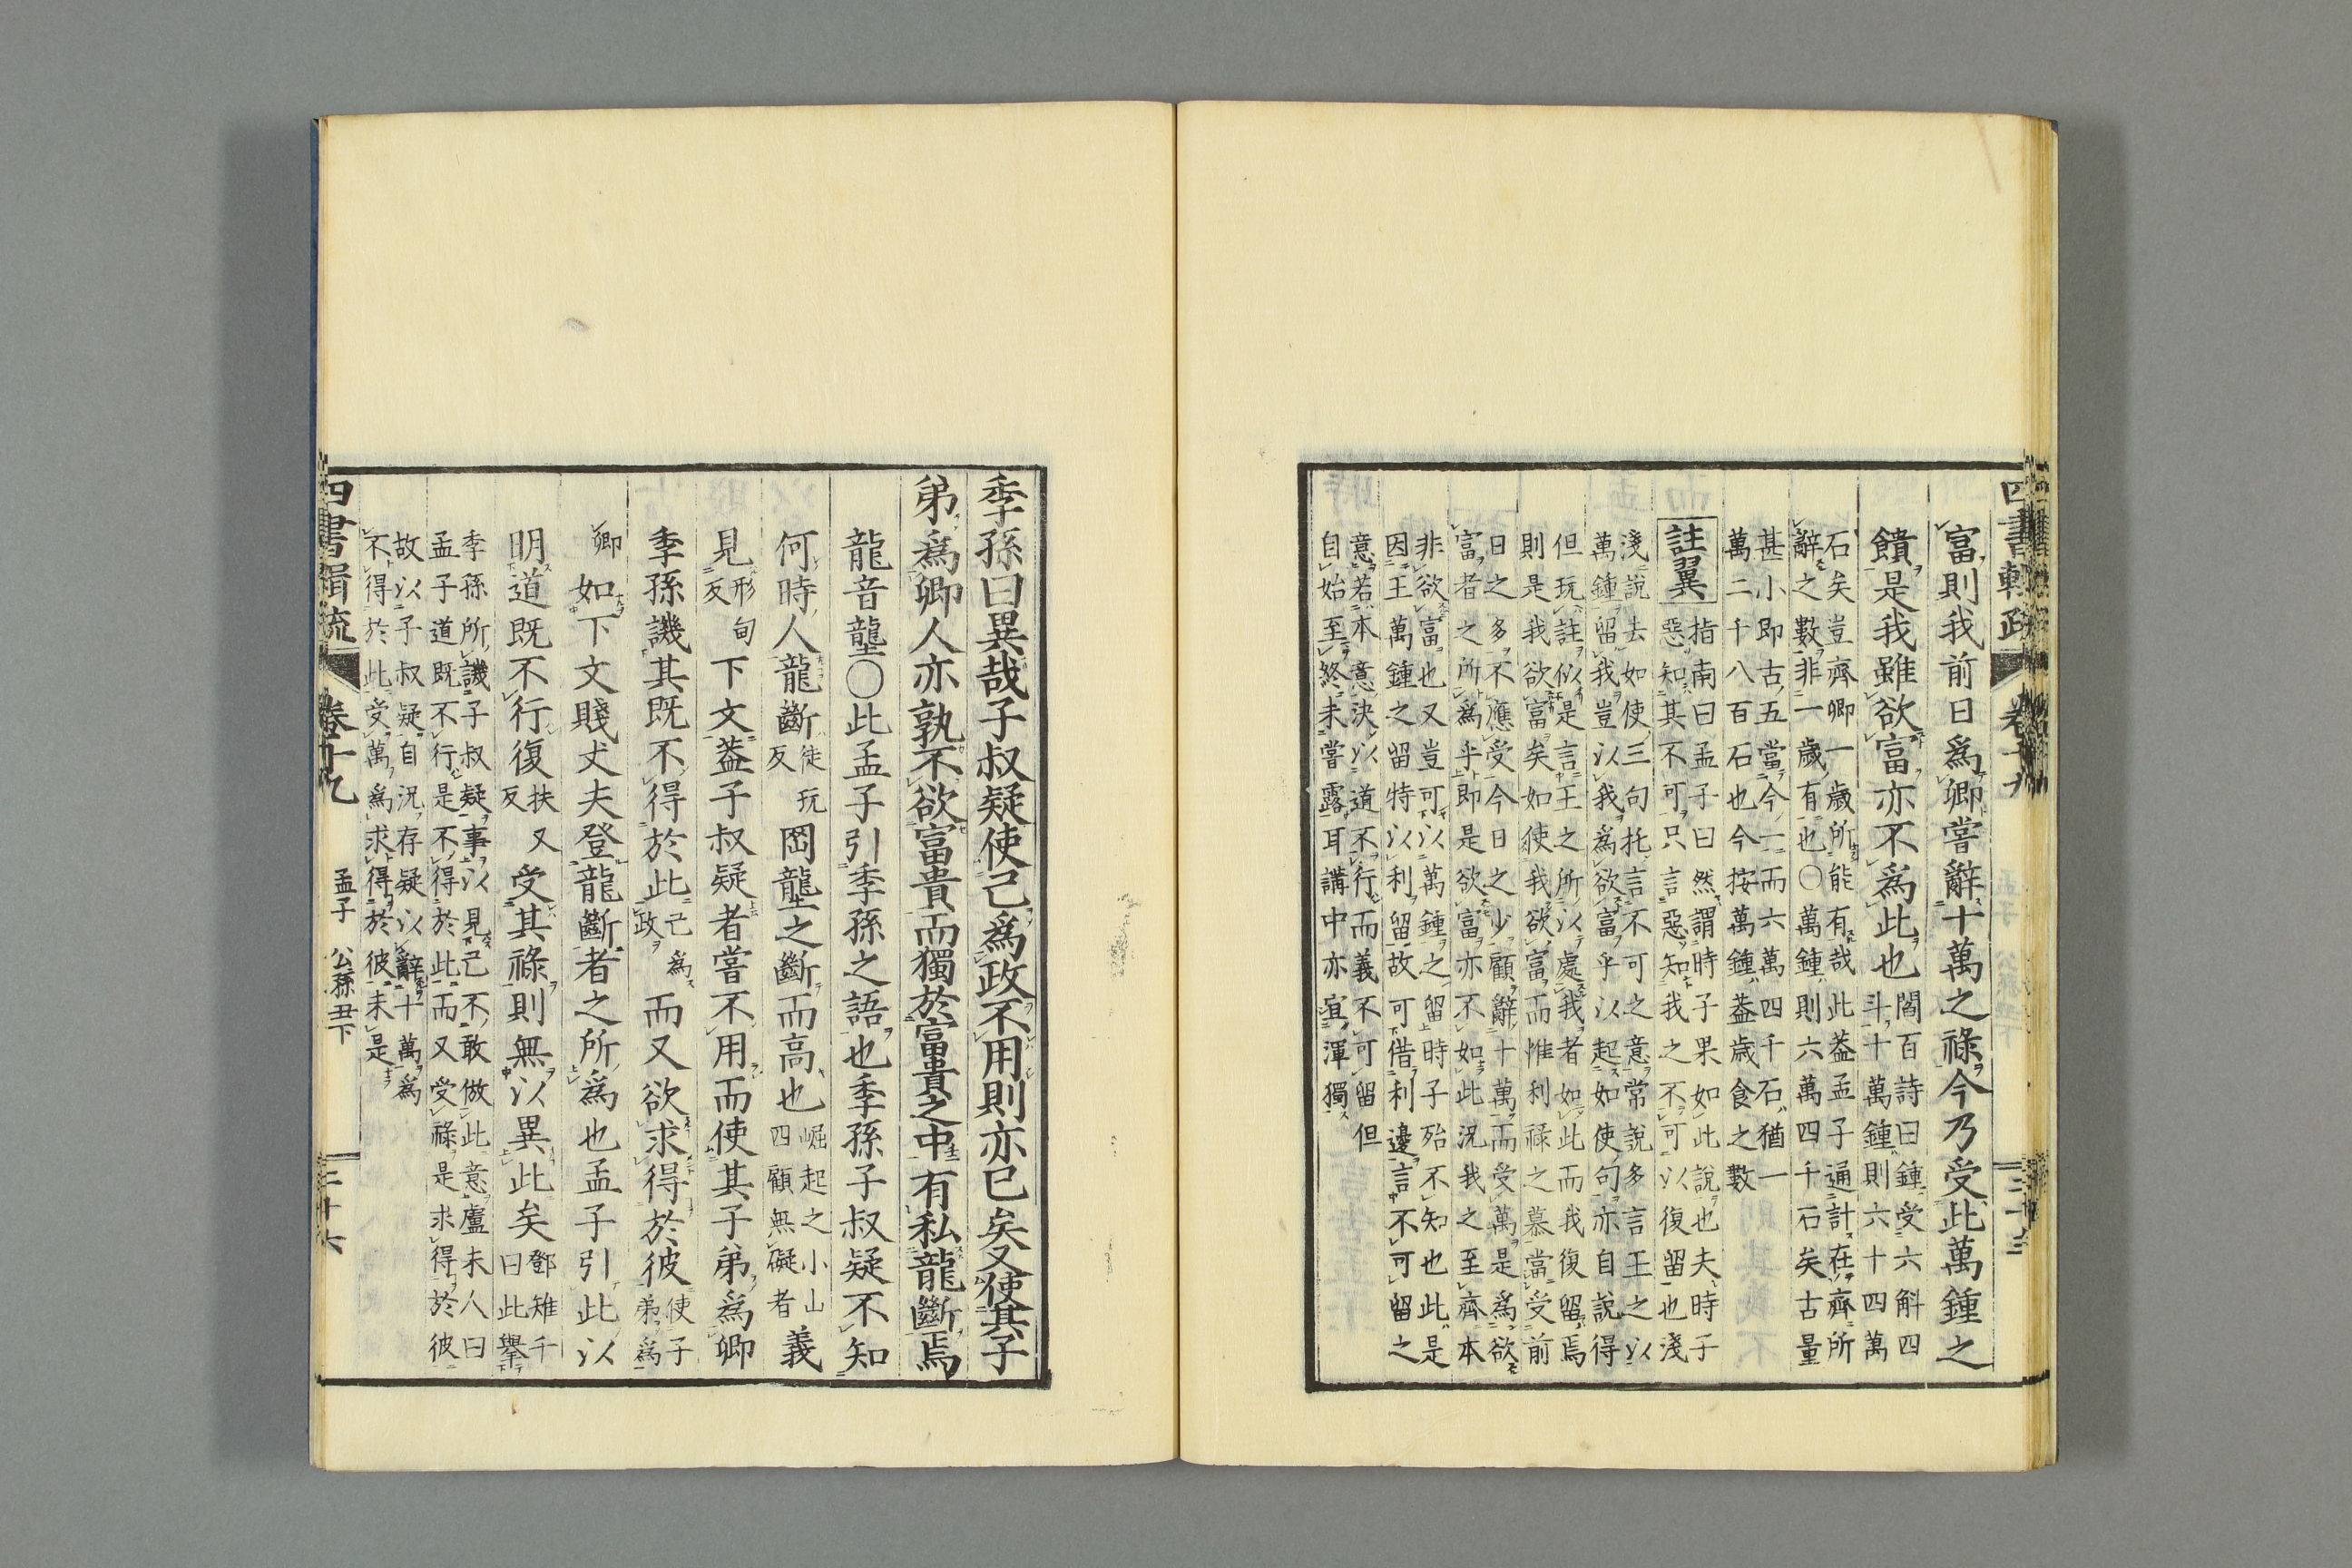 富則我前日爲卿嘗辭十萬之祿今乃受此萬鍾之
饋是我雖欲富亦不爲此也
閻百詩曰鍾受六斛四
斗十萬鍾則六十四萬
石矣豈齊卿一歲所能有哉此葢孟子通計在齊所
辭之數非一歲有也〇萬鍾則六萬四千石矣古量
甚小即古五當今一而六萬四千石猶一
萬二千八百石也今按萬鍾葢歲食之數
註翼
指南曰孟子曰然謂時子果如此說也夫時子
惡知其不可只言惡知我之不可以復留也淺
淺說去如使三句托言不可之意常說多言王之以
萬鍾留我豈以我爲欲富乎以起如使句亦自說得
但玩註似是言王之所以處我者如此而我復留焉
則是我欲富矣如使我欲富而惟利祿之慕當受前
日之多不應受今日之少顧辭十萬而受萬是爲欲
富者之所爲乎即是欲富亦不如此況我之至齊本
非欲富也又豈可以萬鍾之留時子殆不知也此是
因王萬鍾之留特以利留故可借利邊言不可留之
意若本意決以道不行而義不可留但
自始至終未嘗露耳講中亦宜渾獨
季孫曰異哉子叔疑使己爲政不用則亦已矣又使其子
弟爲卿人亦孰不欲富貴而獨於富貴之中有私龍斷焉
龍音壟〇此孟子引季孫之語也季孫子叔疑不知
何時人龍斷
徒玩
反
岡壟之斷而高也
崛起之小山
四顧無礙者
義
見
形甸
反
下文葢子叔疑者嘗不用而使其子弟爲卿
季孫譏其既不得於此
己爲
政
而又欲求得於彼
使子
弟爲
卿
如下文賤丈夫登龍斷者之所爲也孟子引此以
明道既不行復
扶又
反
受其祿則無以異此矣
鄧雉千
曰此擧
季孫所譏子叔疑事以見己不敢倣此意盧未人曰
孟子道既不行是不得於此而又受祿是求得於彼
故以子叔疑自況存疑以辭十萬爲
不得於此受萬爲求得於彼未是
卷十九
孟子
公孫丑下
三十六